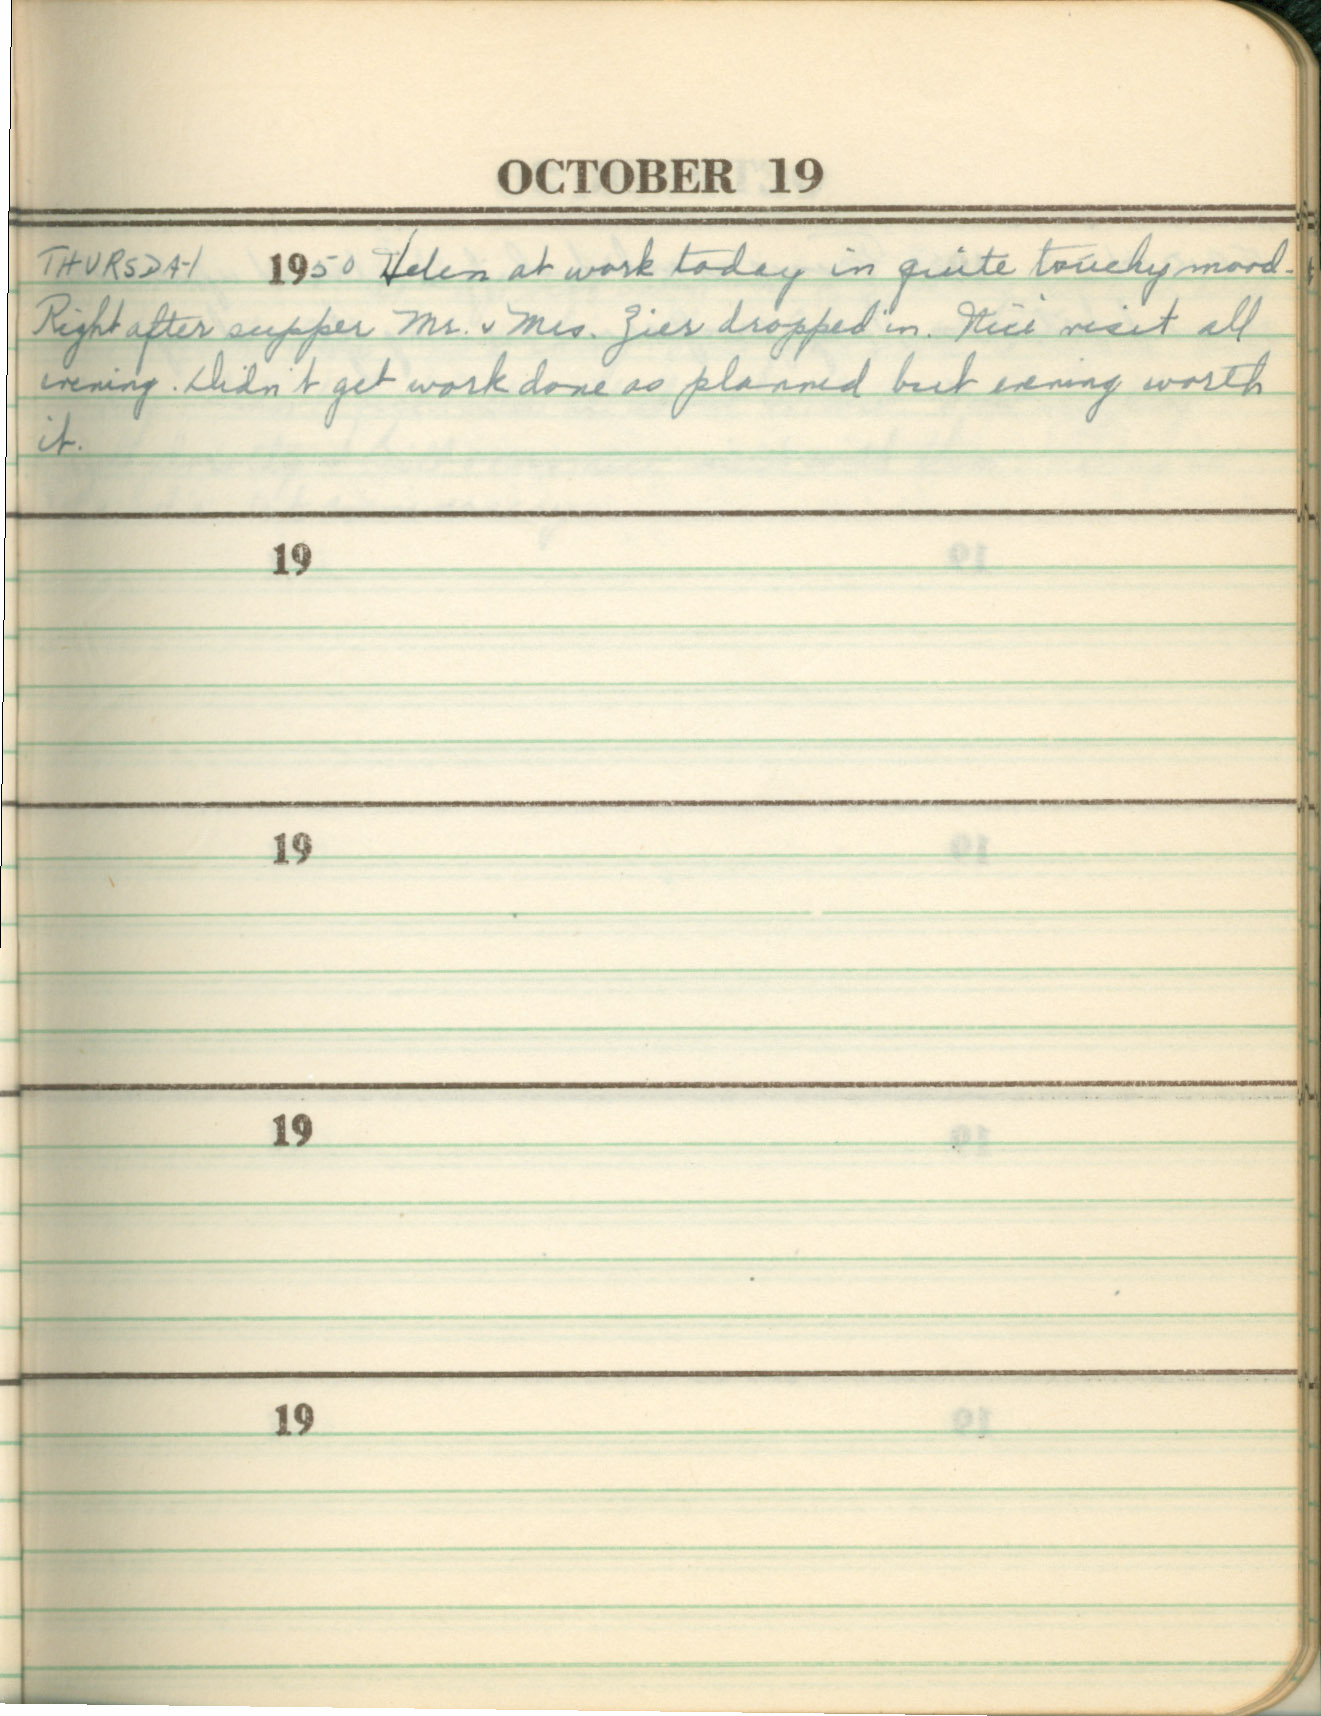 OCTOBER 19
THURSDAY 1950 Helen at work today in quite touchy mood.
Right after supper Mr. & Mrs. Zier dropped in. Nice visit all
evening. Didn't get work done as planned but evening worth
it.
19
19
19
19